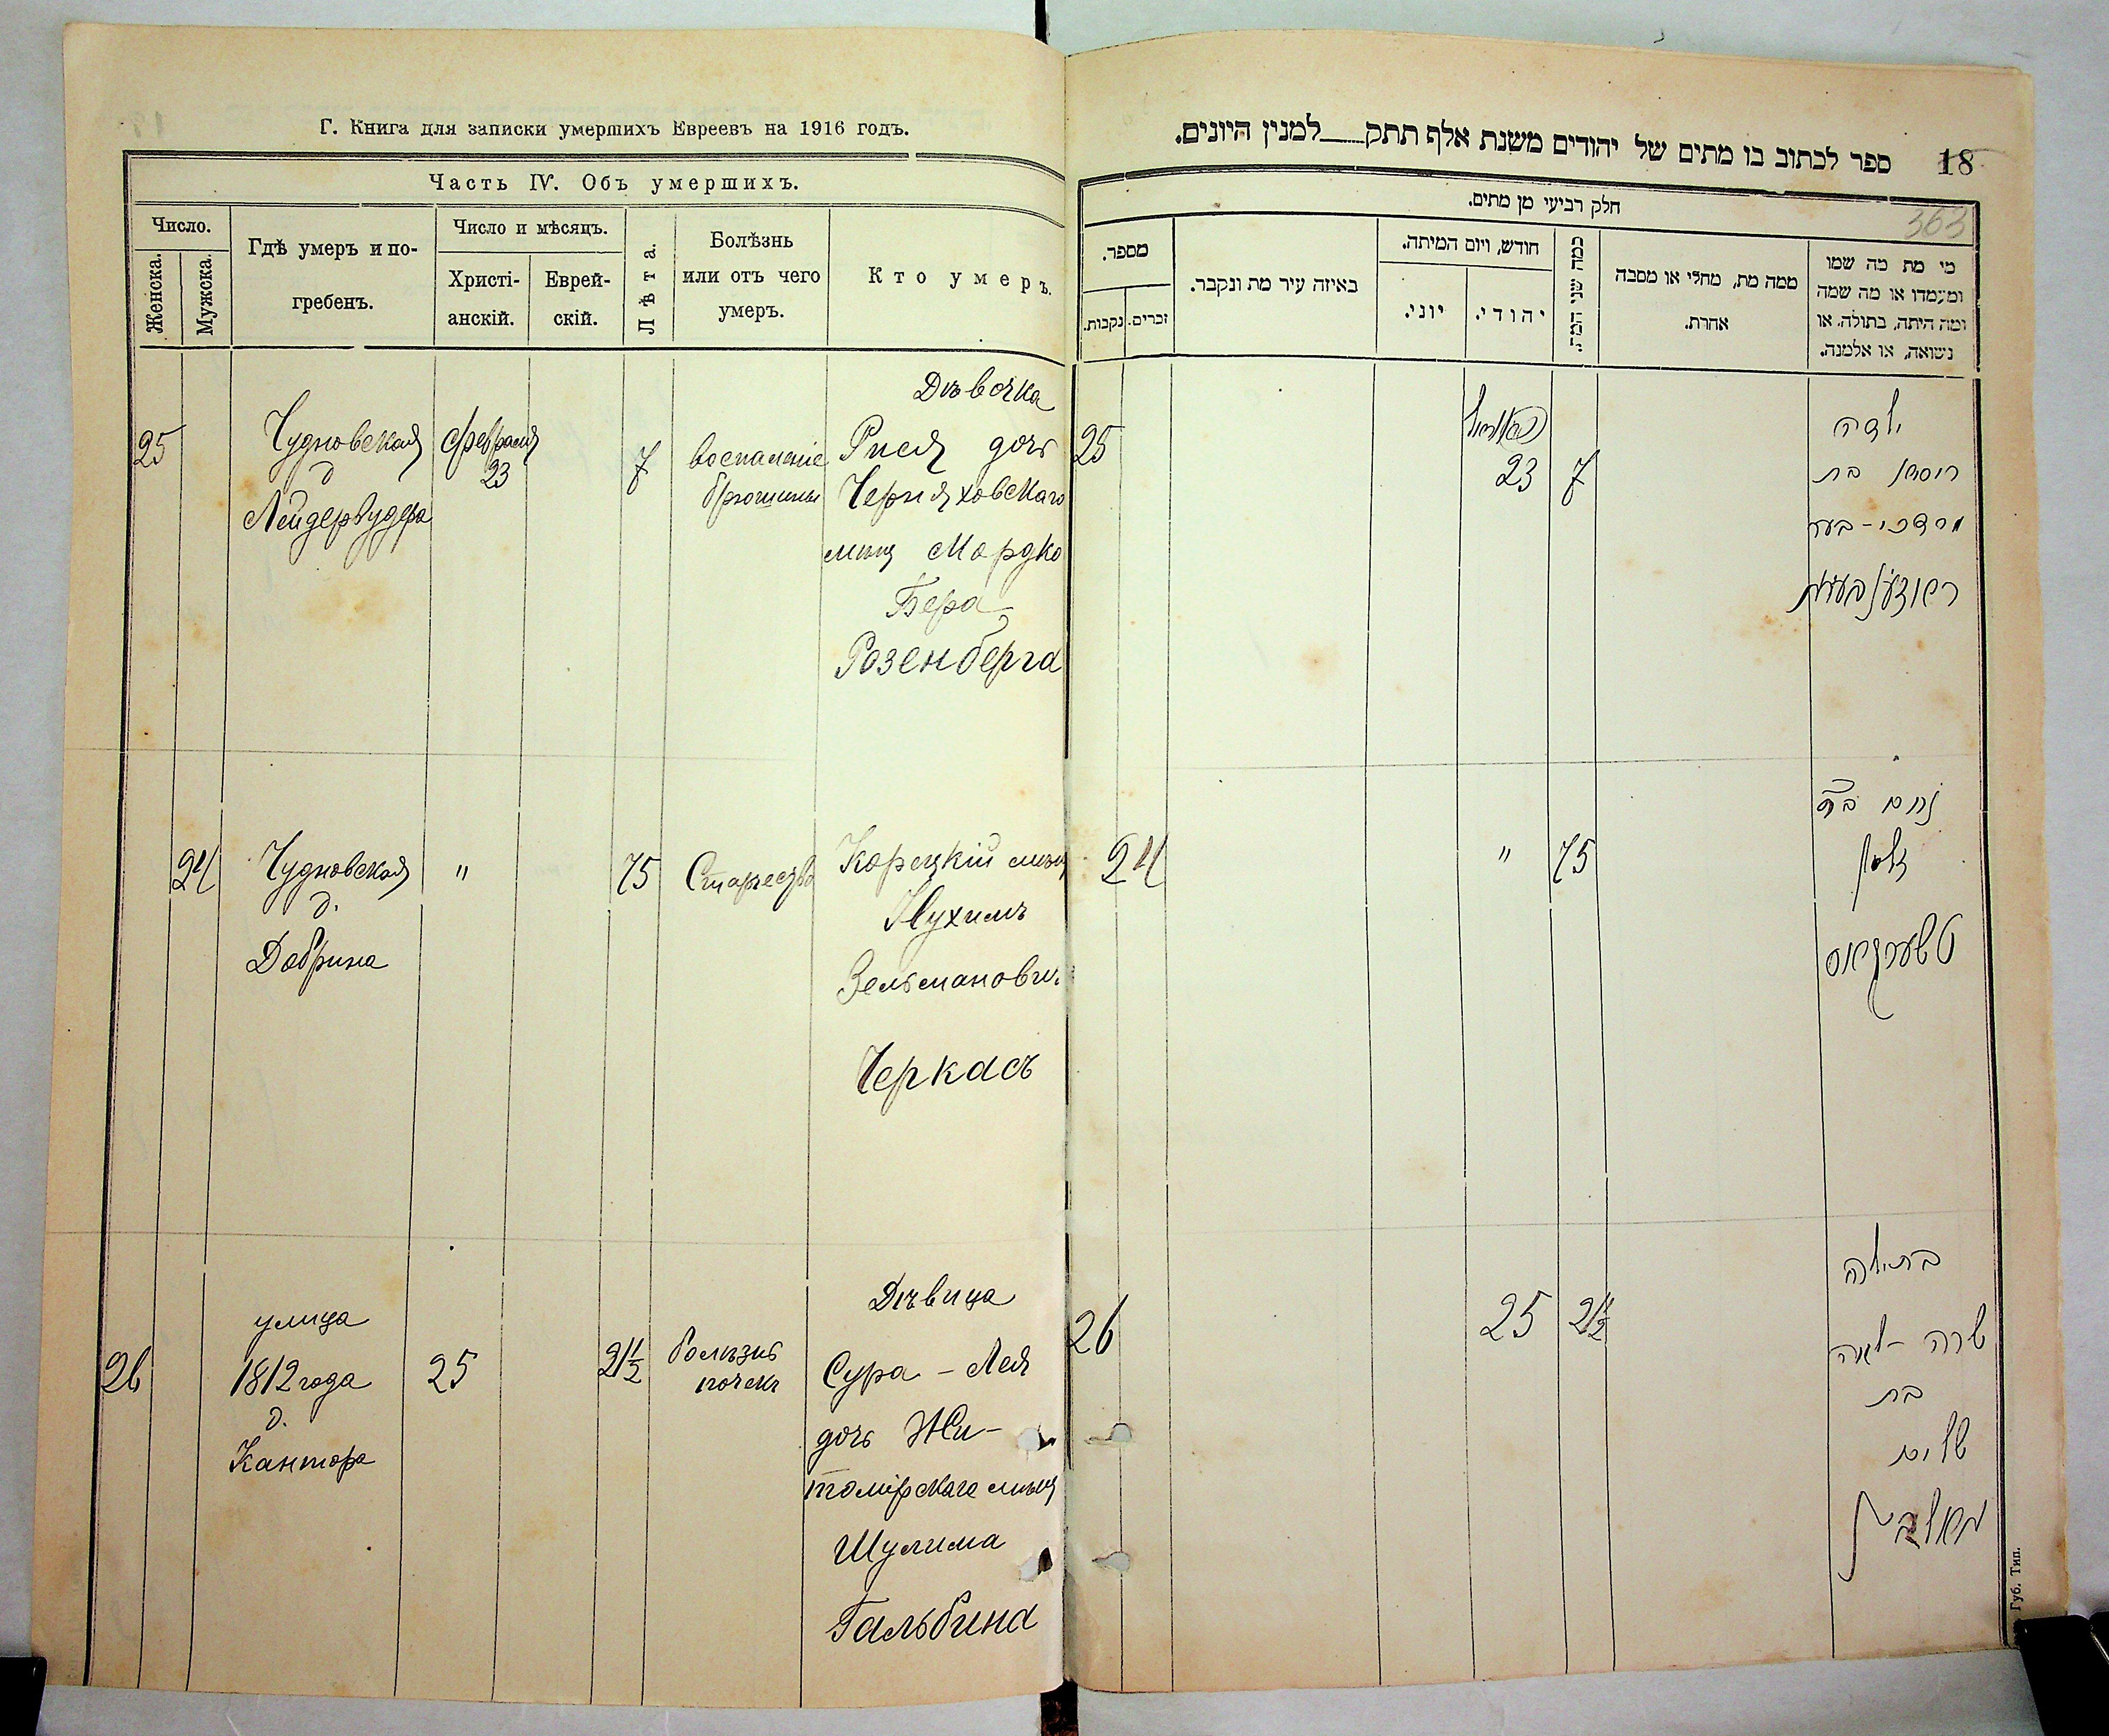 Г. Книга для записки умершихъ Евреевъ на 1916 годъ.
Часть IV. Объ умершихъ.
Число.
Женска.
Мужска.
Гдѣ умеръ и по-
гребенъ.
Число и мѣсяцъ.
Христі-
анскій.
Еврей-
скій.
Лѣта.
Болѣзнь
или отъ чего
умеръ.
Кто умеръ.
25
Чудновская
д
Лейдервудера
Февраля
23
7
воспаленіе
брюшины
Дѣвочка
Рися дочь
Черняховскаго
мѣщ Мордко
Бера
Розенберга
24
Чудновская
д.
Добрина
"
75
Старость
Корецкій мѣщ
Нухимъ
Зельманович
Черкасъ
26
улица
1812 года
д.
Кантора
25
21 1/2
болѣзнь
почекъ
Дѣвица
Сура - Лея
дочь Жи-
томірскаго мѣщ
Шулима
Гальбина
18
ספר לכתוב בו מתים של יהודים משנת אלף תתק___למנין היונים.
363
חלק רביעי מן מתים.
מי מת מה שמו
ומעמדו או מה שמה
ומה היתה, בתולה, או
נשואה, או אלמנה.
ממה מת, מחלי או מסבה
אחרת.
כמה שני המת.
חודש, ויום המיתה.
יהודי.
יוני.
באיזה עיר מת ונקבר.
מספר.
זכרים.
נקבות.
ילדה
ריסיא בת
מרדכי - בער
ראזענבערג
7
23
25
נחום ב"ר
זלמן
טשערקאס
75
"
24
בתולה
שרה - לאה
בת
שלום
גאלבין
21 1/2
25
26
Губ. Тип.